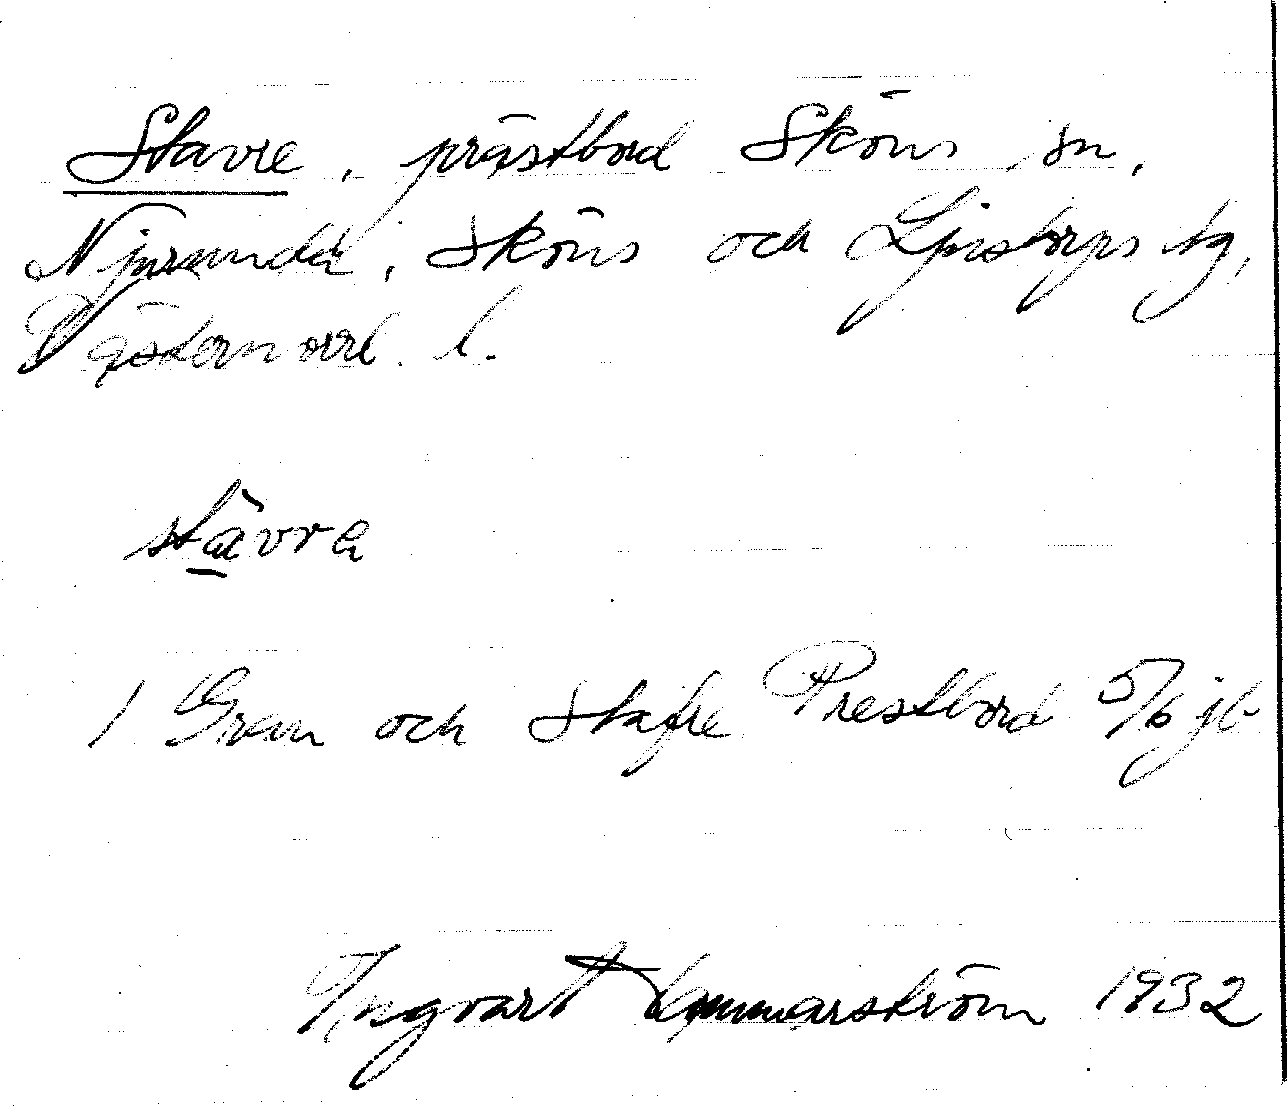 Stavre, prästbord Sköns sn,
Njurunda, Sköns och Ljustorps tg,
Västernorrl. l.
stavra
1 Gran och Stafre Prestbord 5/6 jb
Ingvart Hammarström 1932